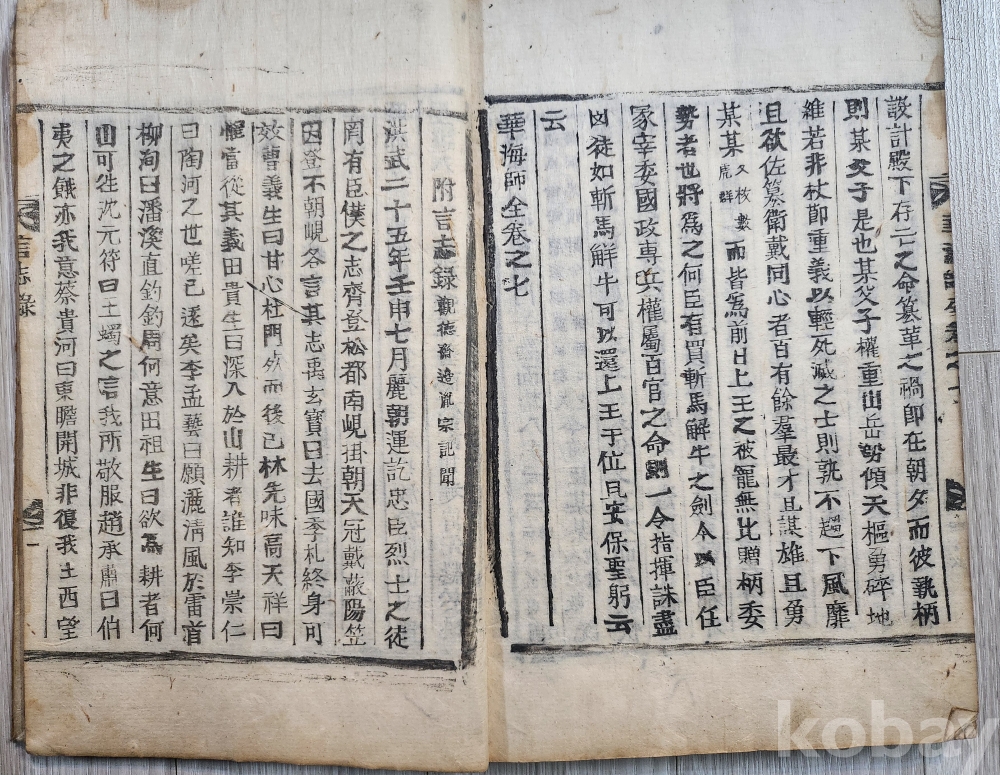 設計殿下存亡之命簒革之禍卽在朝夕而彼執柄
則某父子是也某父子權重山岳勢傾天樞勇碎地
維若非杖節重義以輕死滅之士則孰不趨下風靡
且欲佐簒衛戴同心者百有餘羣最才且謀雄且勇
某某久枚數虎群而皆爲前日上王之被寵無比贈柄委
勢者也將爲之何臣有買斬馬解牛之劍令以臣任
冢宰委國政專兵權屬百官之命則一令指揮誅盡
凶徒如斬馬解牛可以還上王于位且安保聖躬云
云
華海師全卷之七
附言志錄觀德齋邊胤宗記聞
洪武二十五年壬申七月麗朝運訖忠臣烈士之徒
罔有臣僕之志齊登松都南峴掛朝天冠戴蔽陽笠
因登不朝峴各言其志禹玄寶曰去國季札終身可
效曹義生曰甘心杜門然而後已林先味高天祥曰
當從其義田貴生曰深入於山耕者誰知李崇仁
曰陶河之世嗟已遠矣李孟藝曰願灑淸風於雷首
柳洵曰潘溪直釣釣周何意田祖生曰欲爲耕者何
山可往沈元符曰王蠋之言我所敬服趙承肅曰伯
夷之餓亦我意蔡貴河曰東瞻開城非復我土西望
言志錄
一
kobay